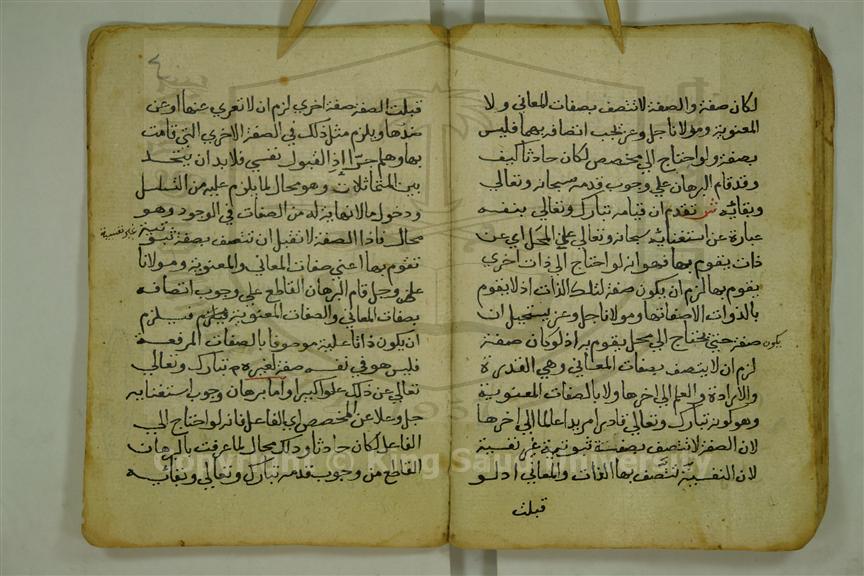 لكان صفة والصفة لا تتصف بصفات المعاني ولا
المعنوية ومولانا جل وعز يجب اتصافه بهما فليس
بصفة ولو احتاج الي مخصص لكان حادثا كيف
وقد قام البرهان علي وجوب قدمه سبحانه وتعالي
وبقائه ش تقدم ان قيامه تبارك وتعالي بنفسه
عبارة عن استغنائه سبحانه وتعالي علي المحل اي عن
ذات يقوم بها فهو انه لو احتاج الي ذات اخري
يقوم بها لزم ان يكون صفة لتلك الذات اذ لا يقوم
بالذوات الا صفاتها ومولانا جل وعز يستحيل ان
يكون
صفة حتي يحتاج الي محل يقوم به اذ لو كان صفة
لزم ان لا يتصف بصفات المعاني وهي القدرة
والارادة والعلم الي اخرها ولا بالصفات المعنوية
وهو كونه تبارك وتعالي قادرا مريدا عالما الي اخرها
لان الصفة لا تتصف بصفة ثبوتية غير نفسية
لان النفسية تتصف بها الذات والمعاني اذ لو
قبلت
٤
قبلت الصفة صفة اخري لزم ان لا تعري عنها او عن
ضدها ويلزم مثل ذلك في الصفة الاخري التي قامت
بها وهلم جرا اذ القبول نفسي فلا بد ان يتحد
بين المتماثلات وهو محال لما يلزم عليه من التسلسل
ودخول ما لا نهاية له من الصفات في الوجود وهو
محال فاذا الصفة لا تقبل ان تتصف بصفة ثبوتية
غير نفسية
تقوم بها اعني صفات المعاني والمعنوية ومولانا
عز وجل قام البرهان القاطع علي وجوب اتصافه
بصفات المعاني والصفات المعنوية فيلزم
ان يكون ذاتا علية موصوفا بالصفات المرفعة
فليس هو في نفسه صفة لغيره تبارك وتعالي
تعالي عن ذلك علوا كبيرا واما برهان وجوب استغنائه
جل وعلا عن المخصص اي الفاعل فانه لو احتاج الي
الفاعل لكان حادثا وذلك محال لما عرفت بالبرهان
القاطع من وجوب قدمه تبارك وتعالي وبقائه
Copyright © King Saud University